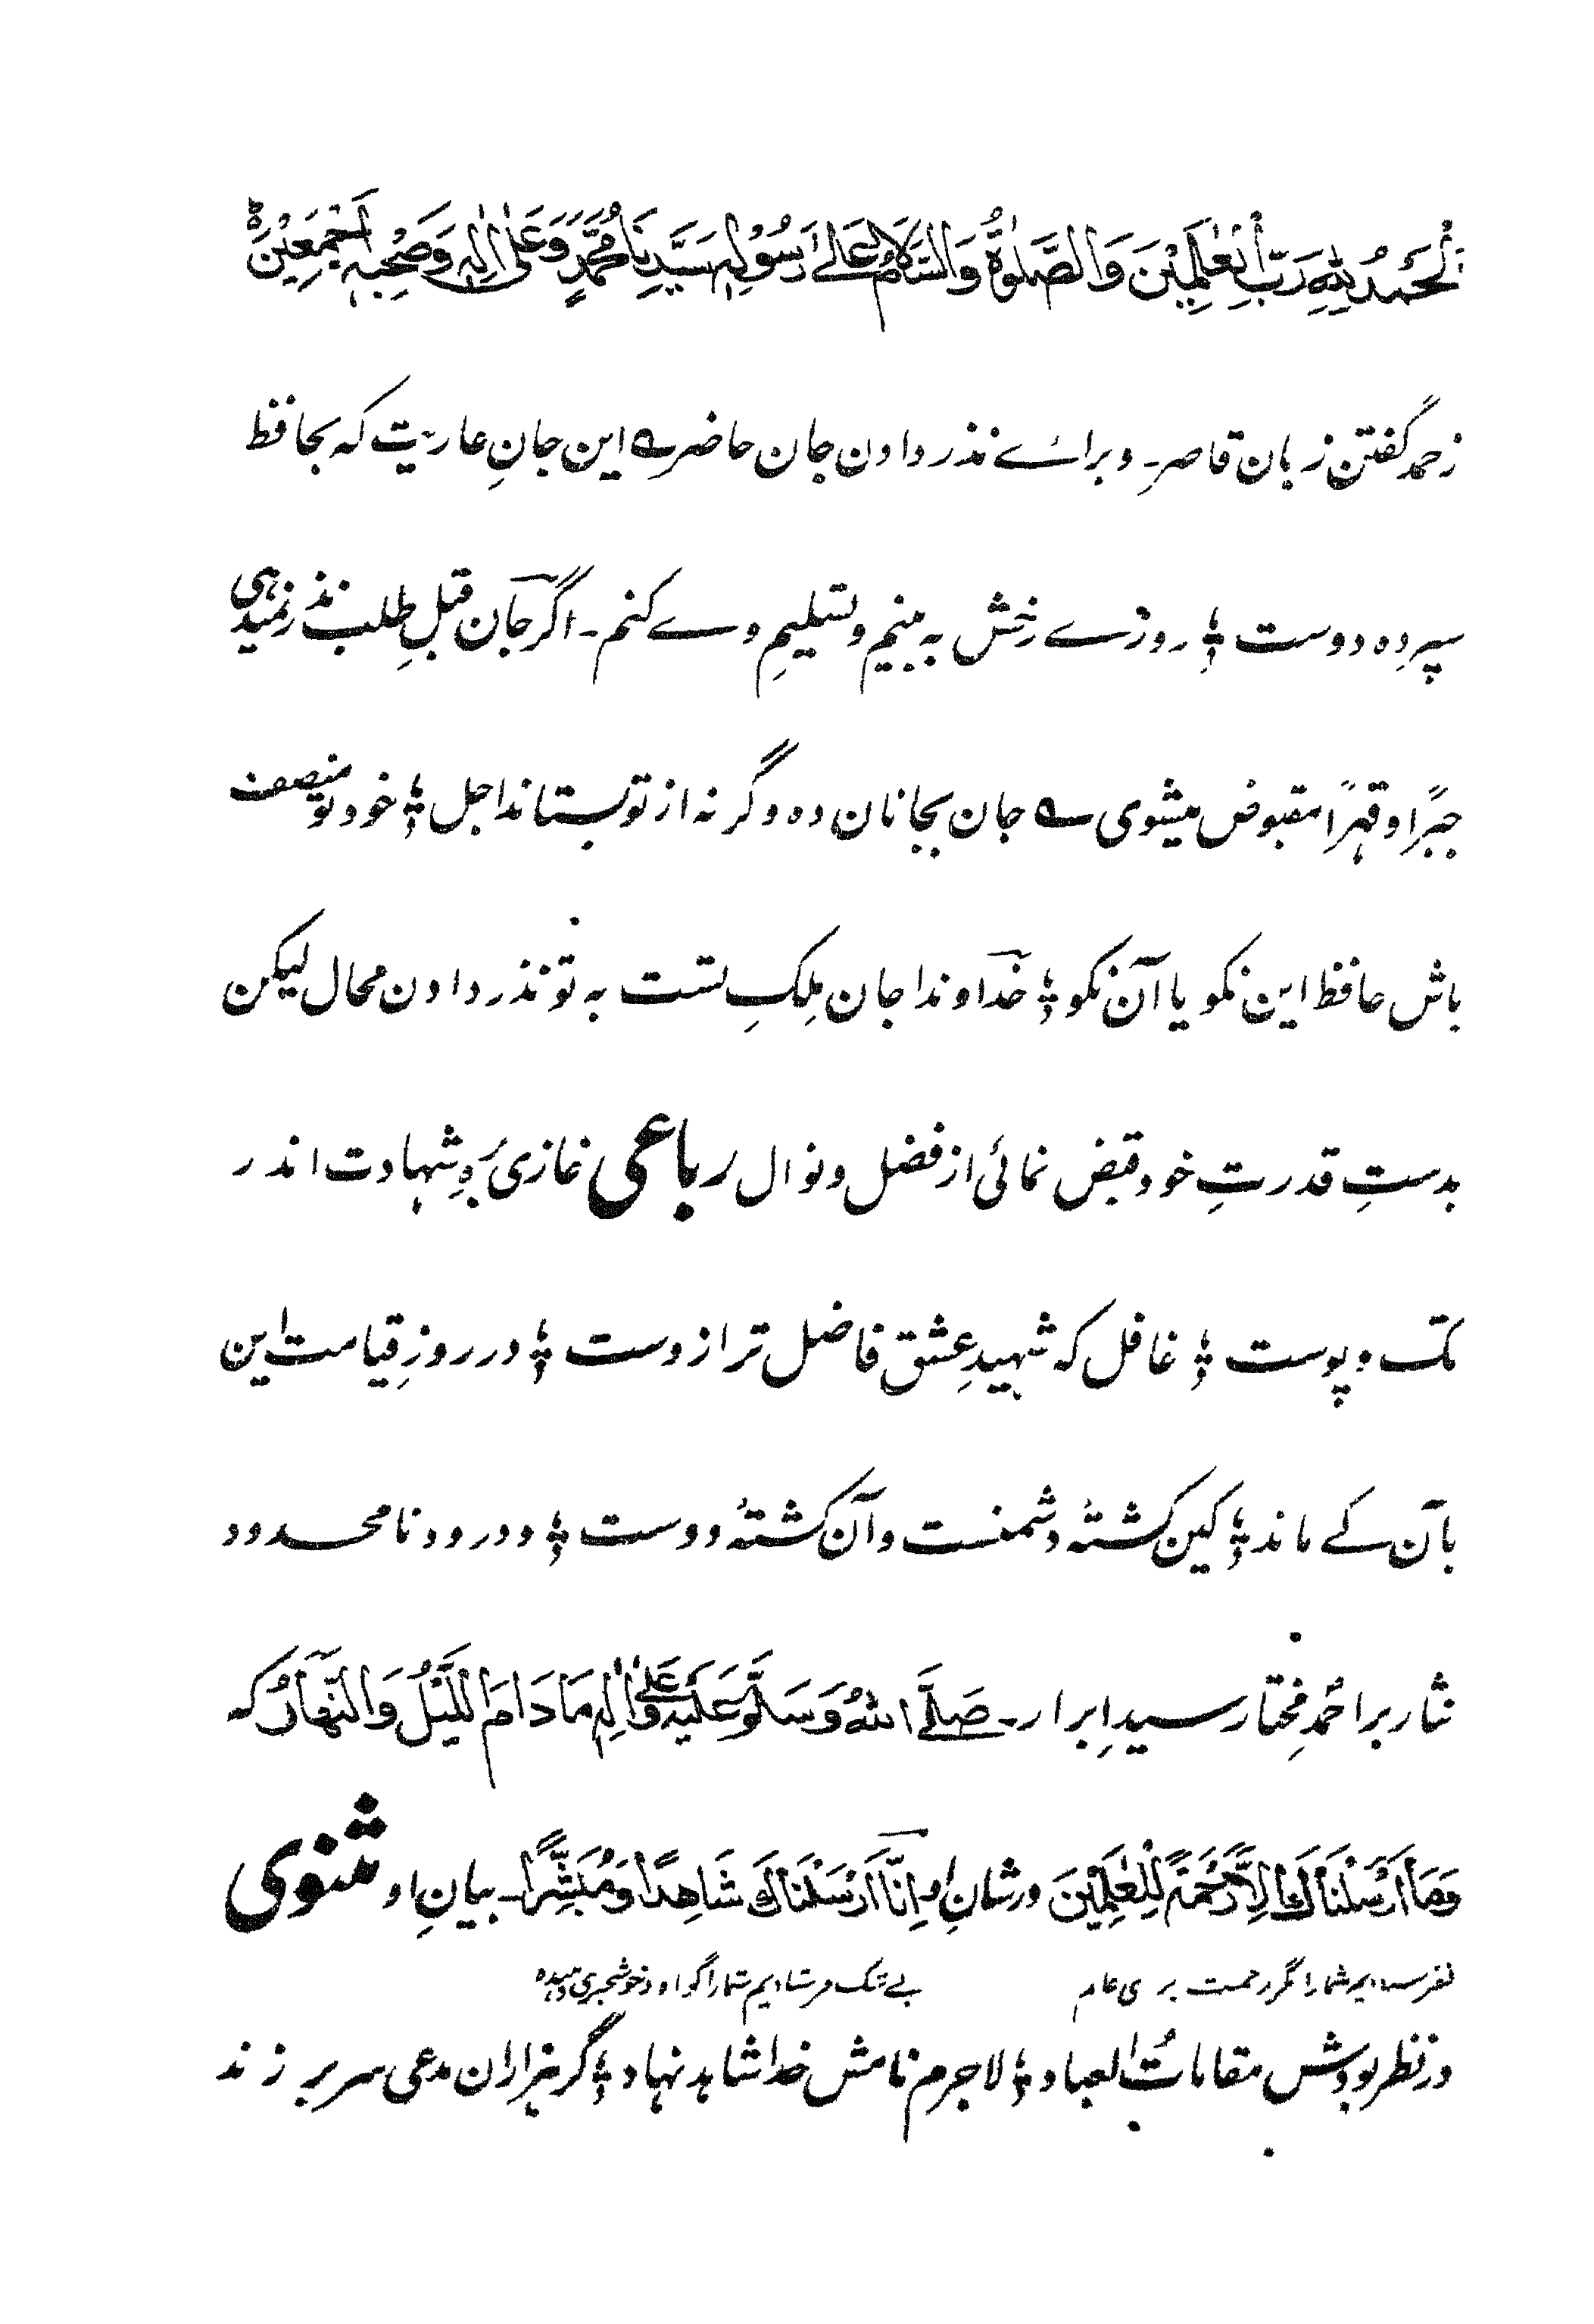 اَلْحَمْدُ لِلّٰہِ رَبِّ الْعٰلَمِیْنَ وَالصَّلٰوۃُ وَالسَّلَامُ عَلٰی رَسُوْلِہٖ سَیِّدِنَا مُحَمَّدٍ وَّعَلٰی اٰلِہٖ وَصَحْبِہٖ اَجْمَعِیْنَ ؕ
زحمد گفتن زبان قاصر۔ و برائے نذر دادن جان حاضر ؎ این جانِ عاریت کہ بحافظ
سپردہ دوست ؛ روزے رخش بہ بینم و تسلیمِ وے کنم۔ اگر جان قبلِ طلب نذر نمیدہی
جبراً و قہراً مقبوض میشوی ؎ جان بجانان دہ وگرنہ از تو بستاند اجل ؛ خود تو منصف
باش حافظ این نکو یا آن نکو ؛ خداوندا جان مِلکِ تست بہ تو نذر دادن محال لیکن
بدستِ قدرتِ خود قبض نمائی از فضل و نوال رباعی غازی برہِ شہادت اندر
تک و پوست ؛ غافل کہ شہیدِ عشق فاضل تر از وست ؛ در روزِ قیامت این
بآن کے ماند ؛ کین کشتۂ دشمنست وآن کشتۂ دوست ؛ و درود نامحدود
نثار بر احمدِ مختار سید ابرار۔ صَلَّی اللہُ وَسَلَّمَ عَلَیْہِ وَعَلٰی اٰلِہٖ مَادَامَ اللَّیْلُ وَالنَّہَارُ کہ
وَمَا اَرْسَلْنَاکَ اِلَّا رَحْمَۃً لِّلْعٰلَمِیْنَ در شانِ او۔ اِنَّا اَرْسَلْنَاکَ شَاہِدًا وَّمُبَشِّرًا۔ بیانِ او مثنوی
نفرستادیم شمارا مگر رحمت برای عام بے شک فرستادیم شمارا گواہ و خوشخبری دہندہ
در نظر بودش مقامات العباد ؛ لاجرم نامش خدا شاہد نہاد ؛ گر ہزاران مدعی سر بر زند